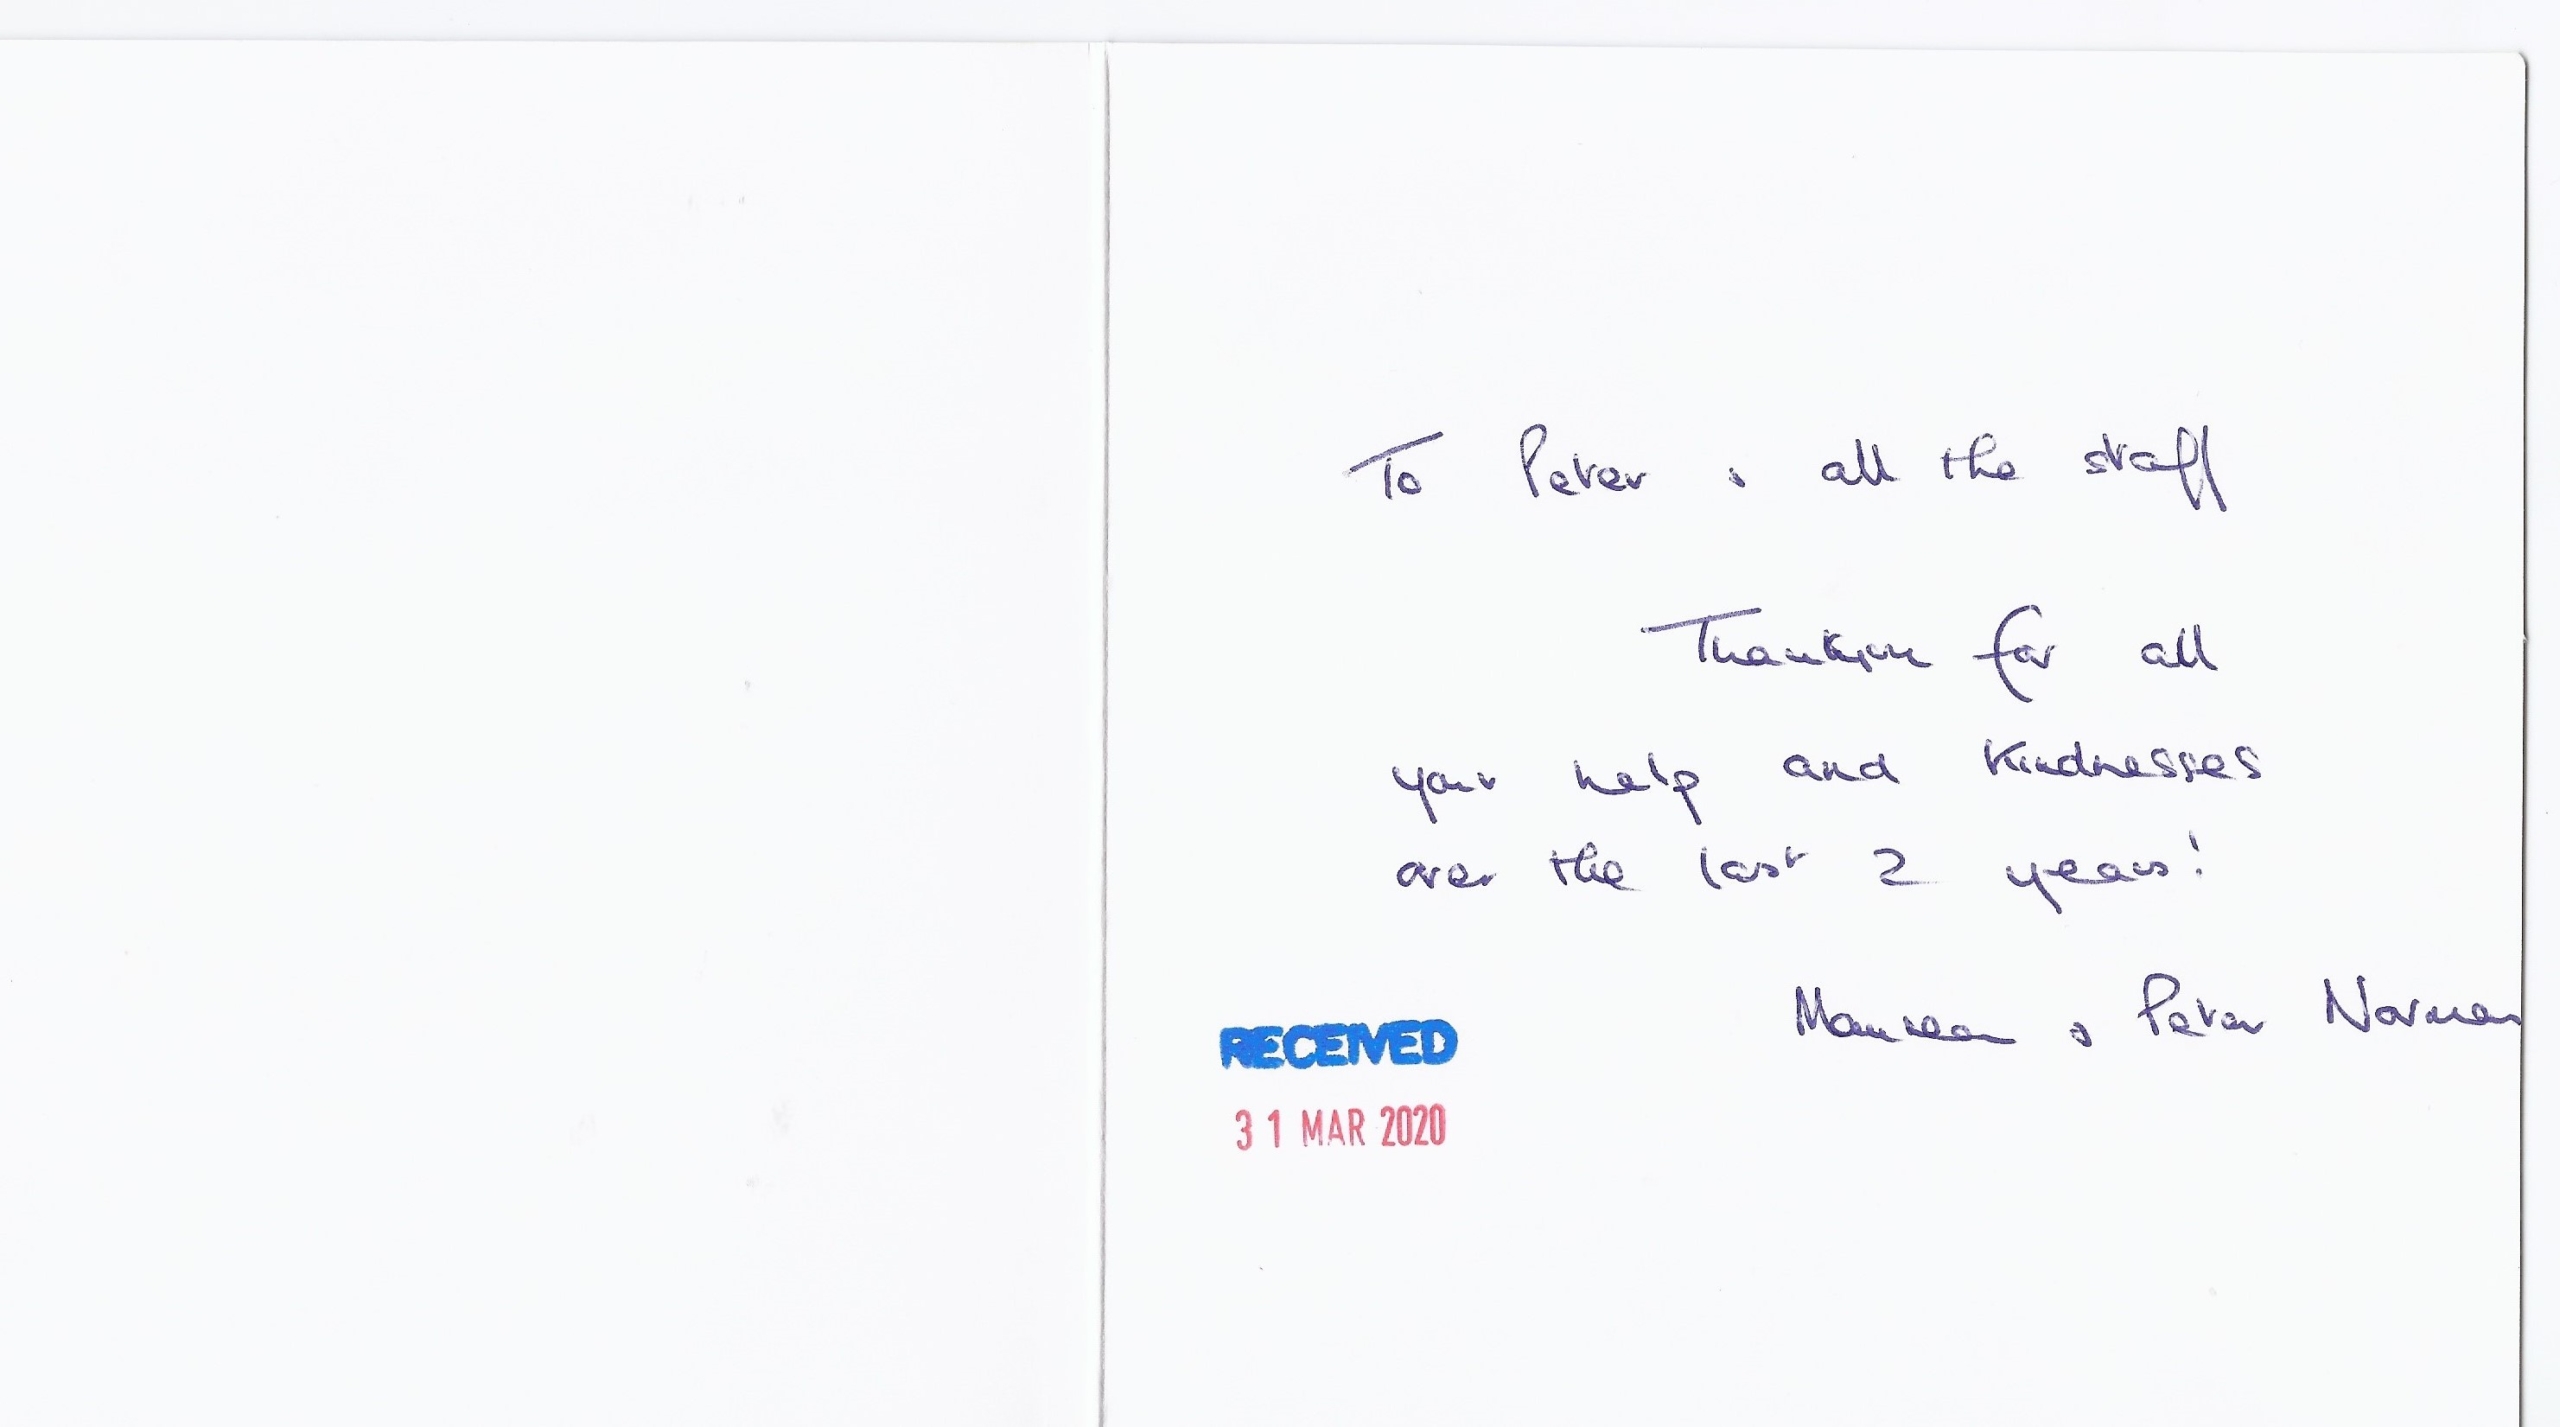 To Peter & all the staff
Thankyou for all
your help and kindnesses
over the last 2 years!
Maureen & Peter Norman
RECEIVED
31 MAR 2020